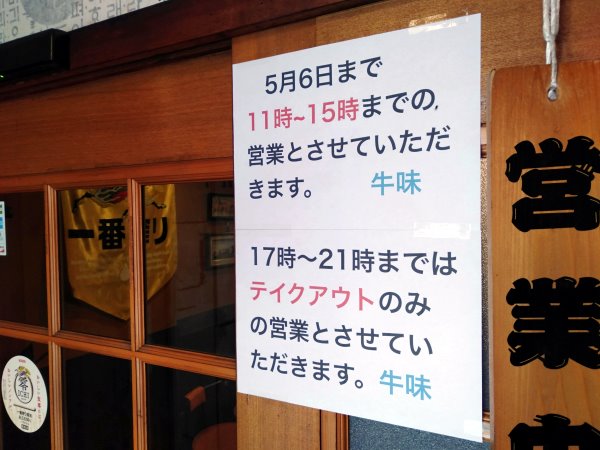 5月6日まで
11時~15時までの,
営業とさせていただ
きます。 牛味
17時〜21時までは
テイクアウトのみ
の営業とさせてい
ただきます。牛味
営業中
一番搾り